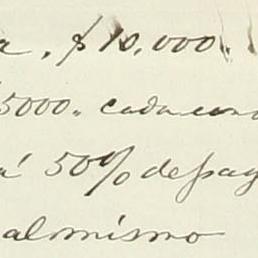 a, $10,000.
5000,, cada uno
a' 50% de pag
al mismo